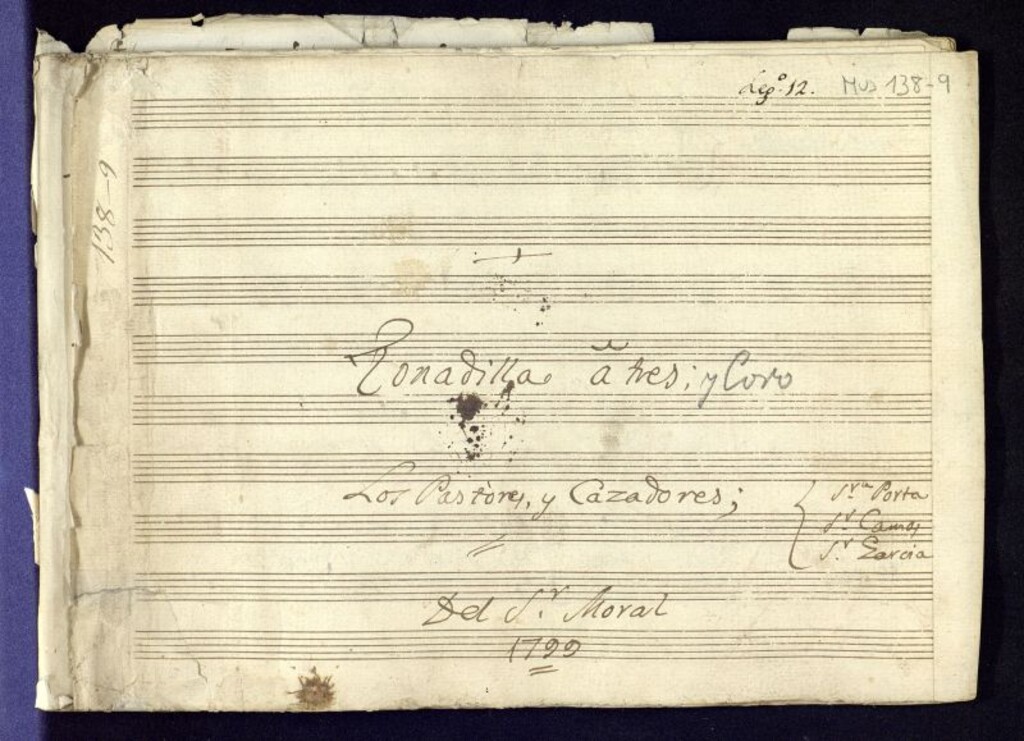 Leg.º 12. MUS 138-9
138-9
Tonadilla â tres; y Coro
Los Pastores, y Cazadores;
S.ra Porta
S.r Camas
S.r Garcia
Del S.r Moral
1799